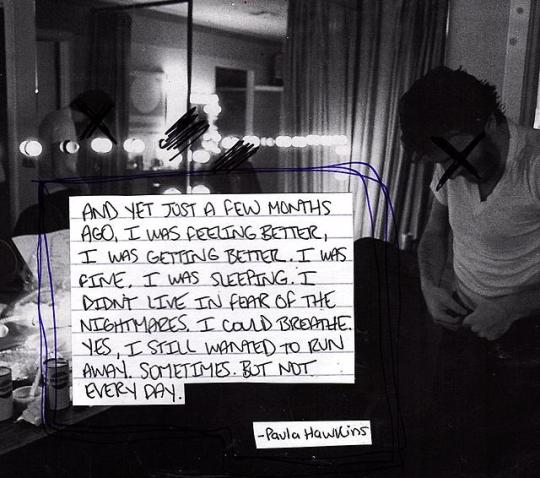 AND YET JUST A FEW MONTHS
AGO, I WAS FEELING BETTER,
I WAS GETTING BETTER. I WAS
FINE. I WAS SLEEPING. I
DIDNT LIVE IN FEAR OF THE
NIGHTMARES. I COULD BREATHE.
YES, I STILL WANTED TO RUN
AWAY. SOMETIMES. BUT NOT
EVERY DAY.
-Paula Hawkins